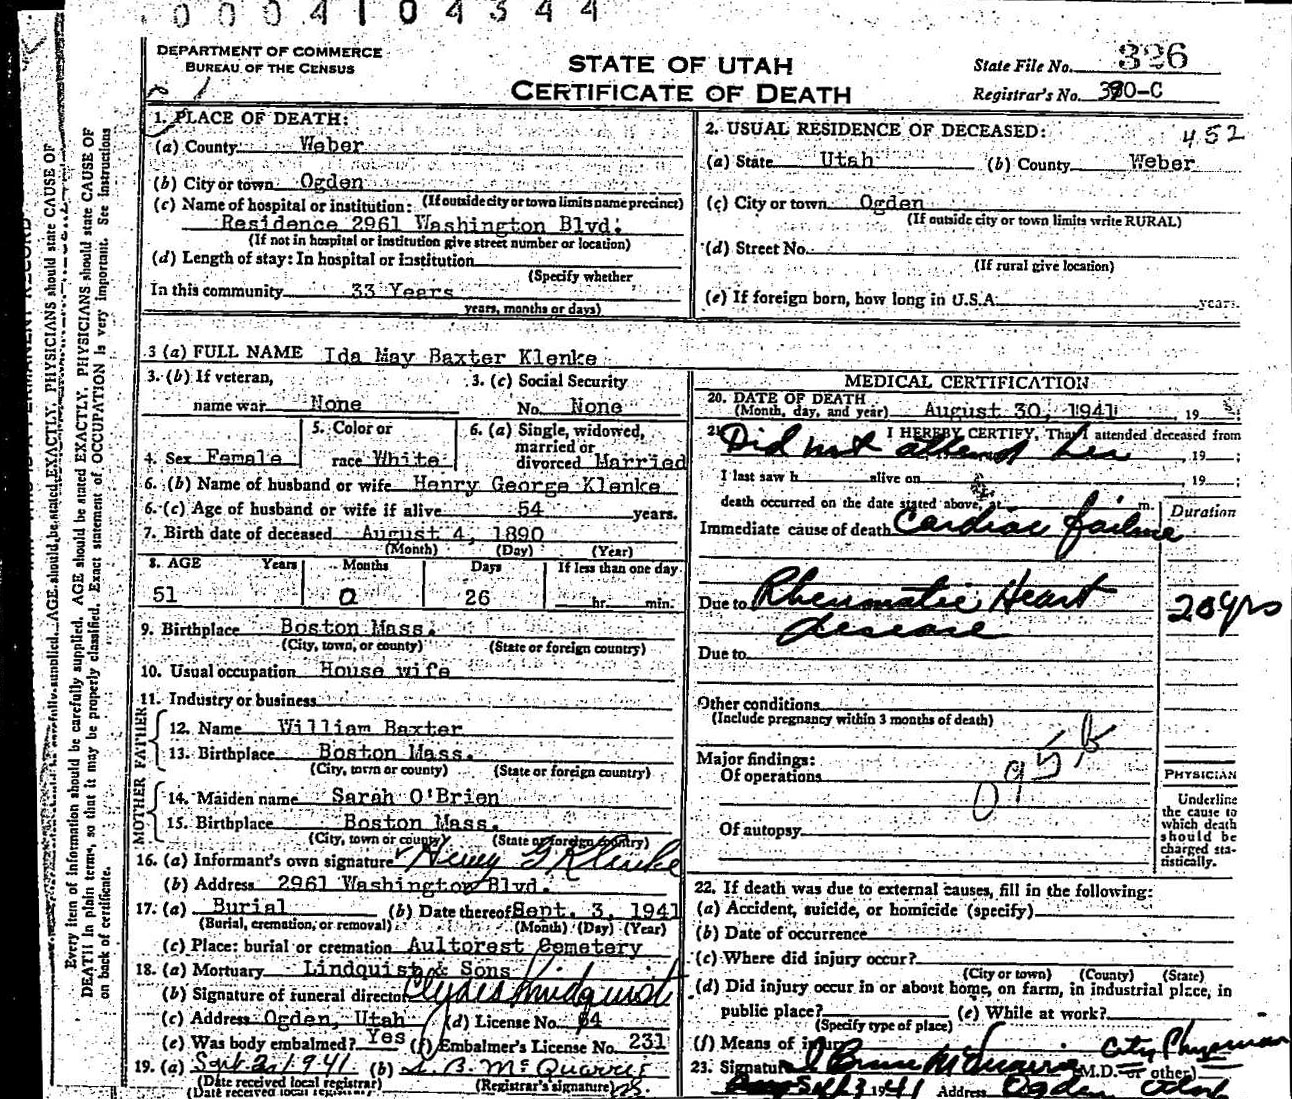 0 0 0 4 1 0 4 3 4 4
DEPARTMENT OF COMMERCE
BUREAU OF THE CENSUS
STATE OF UTAH
CERTIFICATE OF DEATH
State File No. 326
Registrar's No. 390-C
1. PLACE OF DEATH:
(a) County Weber
(b) City or town Ogden
(If outside city or town limits name precinct)
(c) Name of hospital or institution:
Residence 2961 Washington Blvd.
(If not in hospital or institution give street number or location)
(d) Length of stay: In hospital or institution
(Specify whether
In this community 33 Years
years, months or days)
2. USUAL RESIDENCE OF DECEASED: 452
(a) State Utah (b) County Weber
(c) City or town Ogden
(If outside city or town limits write RURAL)
(d) Street No.
(If rural give location)
(e) If foreign born, how long in U.S.A. years.
3 (a) FULL NAME Ida May Baxter Klenke
3. (b) If veteran,
name war None
3. (c) Social Security
No. None
4. Sex Female
5. Color or
race White
6. (a) Single, widowed,
married or
divorced Married
6. (b) Name of husband or wife Henry George Klenke
6. (c) Age of husband or wife if alive 54 years.
7. Birth date of deceased August 4, 1890
(Month) (Day) (Year)
8. AGE Years Months Days If less than one day
51 0 26 hr. min.
9. Birthplace Boston Mass.
(City, town, or county) (State or foreign country)
10. Usual occupation House wife
11. Industry or business
FATHER
12. Name William Baxter
13. Birthplace Boston Mass.
(City, town or county) (State or foreign country)
MOTHER
14. Maiden name Sarah O'Brien
15. Birthplace Boston Mass.
(City, town or county) (State or foreign country)
16. (a) Informant's own signature Henry G Klenke
(b) Address 2961 Washington Blvd.
17. (a) Burial (b) Date thereof Sept. 3, 1941
(Burial, cremation, or removal) (Month) (Day) (Year)
(c) Place: burial or cremation Aultorest Cemetery
18. (a) Mortuary Lindquist & Sons
(b) Signature of funeral director Clyde Lindquist
(c) Address Ogden, Utah (d) License No. 64
(e) Was body embalmed? Yes (f) Embalmer's License No. 231
19. (a) Sept. 2, 1941 (b) L. B. McQuarrie
(Date received local registrar) (Registrar's signature)
(Date received local registrar)
MEDICAL CERTIFICATION
20. DATE OF DEATH
(Month, day, and year) August 30, 1941, 19
21. I HEREBY CERTIFY, That I attended deceased from
Did not attend her, 19 ;
I last saw h alive on , 19 ;
death occurred on the date stated above, at m. Duration
Immediate cause of death Cardiac failure
Due to Rheumatic Heart 20 yrs
disease
Due to
Other conditions
(Include pregnancy within 3 months of death)
Major findings:
Of operations
Of autopsy
PHYSICIAN
Underline
the cause to
which death
should be
charged sta-
tistically.
22. If death was due to external causes, fill in the following:
(a) Accident, suicide, or homicide (specify)
(b) Date of occurrence
(c) Where did injury occur?
(City or town) (County) (State)
(d) Did injury occur in or about home, on farm, in industrial place, in
public place? (e) While at work?
(Specify type of place)
(f) Means of injury City Physician
23. Signature McQuarrie (M.D. or other)
1941 Address Ogden Utah
PHYSICIANS should state CAUSE OF
Every item of information should be carefully supplied. AGE should be stated EXACTLY. PHYSICIANS should state CAUSE OF
DEATH in plain terms, so that it may be properly classified. Exact statement of OCCUPATION is very important. See instructions
on back of certificate.